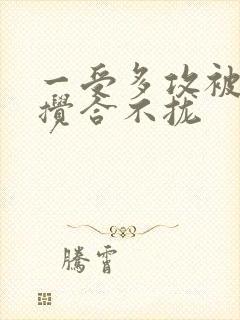 一受多攻被
攪合不拢
騰霄